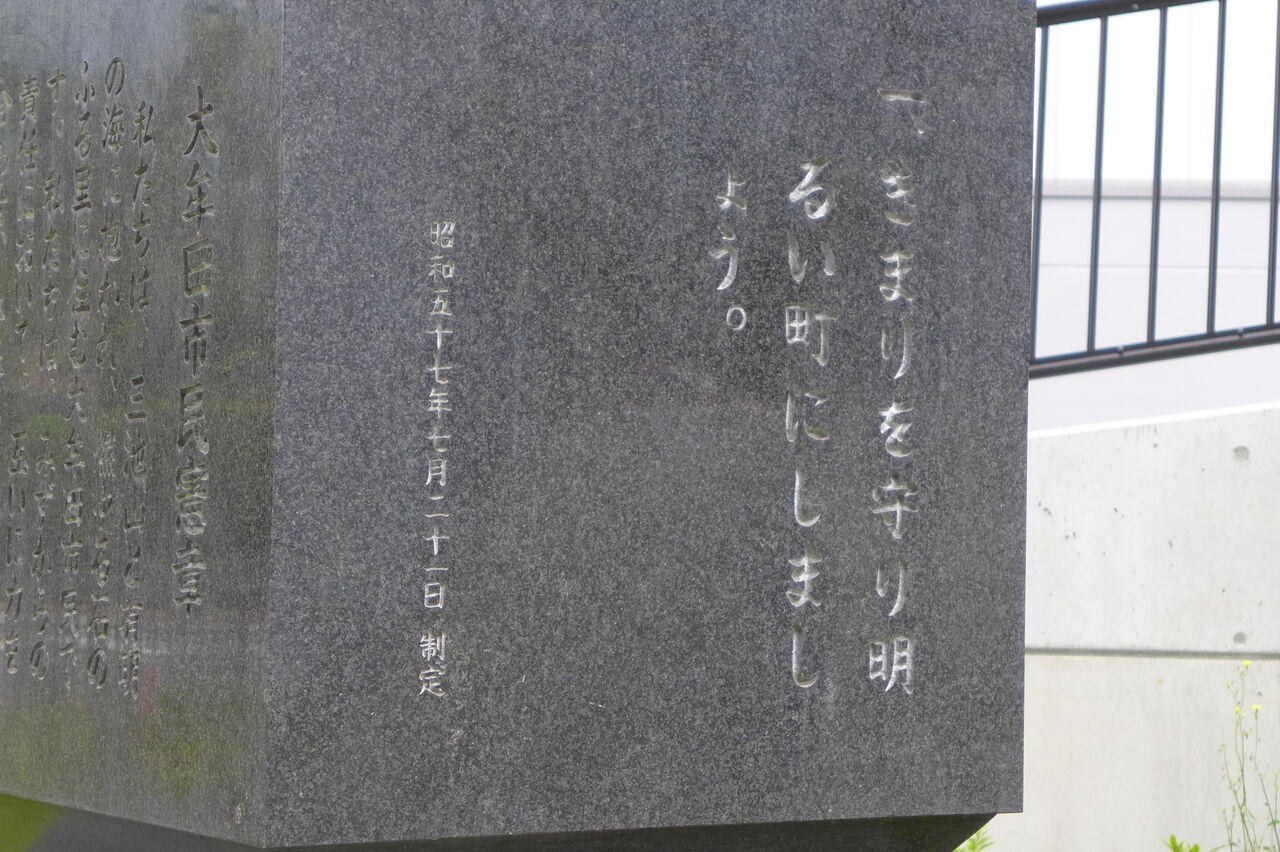 一、きまりを守り明
るい町にしまし
よう。
昭和五十七年七月二十一日 制定
大牟田市民憲章
私たちは、三池山と有明
の海に抱かれ、燃える石の
ふる里に生む大牟田市民で
す。私たちは、みずからの
責任において、互いに力を